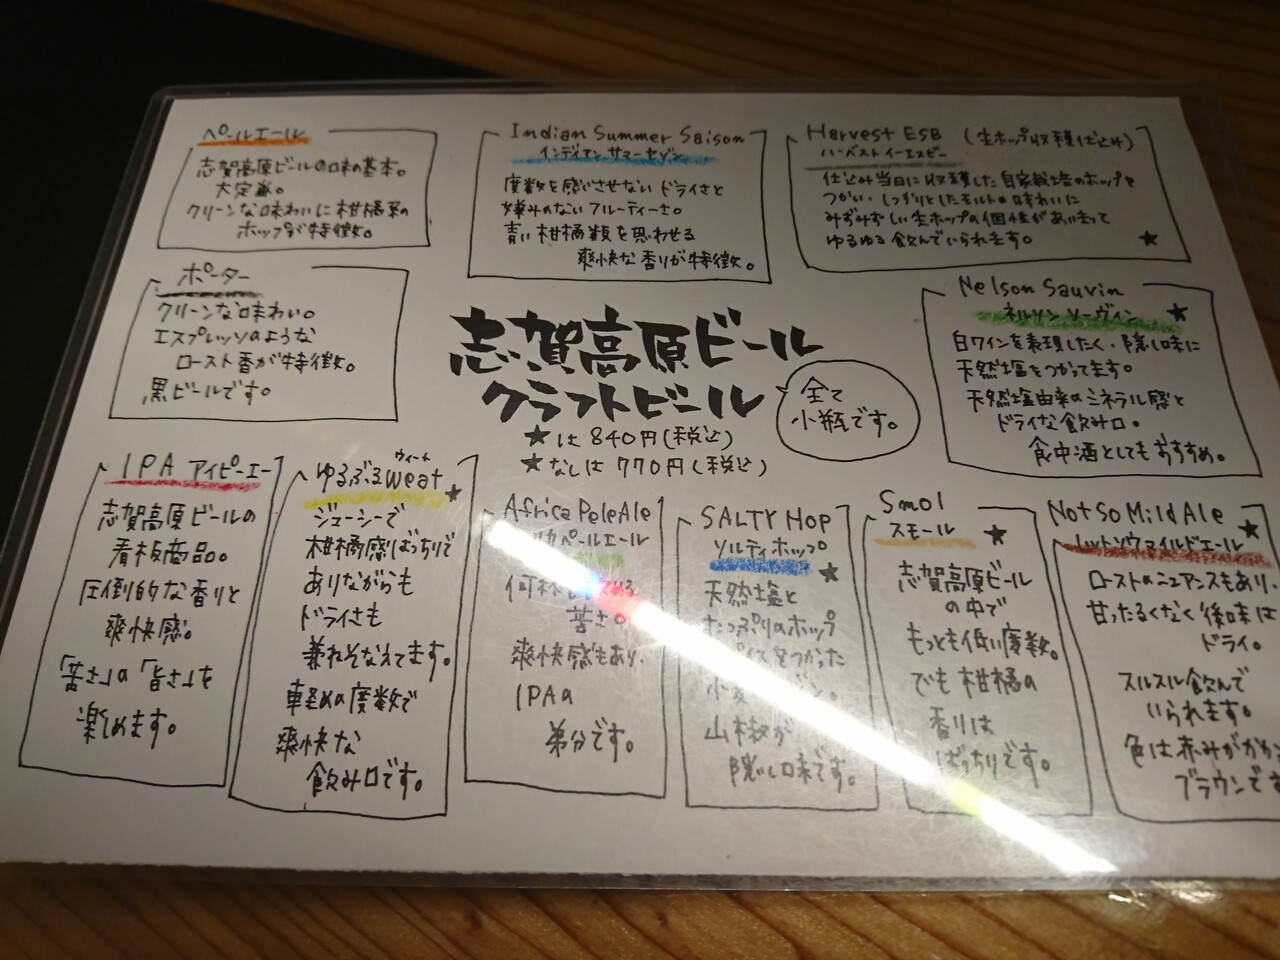 ペールエール
志賀高原ビールの味の基本。
大定番。
クリーンな味わいに柑橘系の
ホップが特徴。
Indian Summer Saison
インディアン サマーセゾン
度数を感じさせない ドライさと
嫌みのない フルーティーさ。
青い柑橘類を思わせる
爽快な香りが特徴。
Harvest ESB (生ホップ収穫仕込み)
ハーベスト イーエスビー
仕込み当日に収穫した自家栽培のホップを
つかい、しっかりとしたモルトの味わいに
みずみずしい生ホップの個性があいまって
ゆるゆる飲んでいられます。 ★
ポーター
クリーンな味わい。
エスプレッソのような
ロースト香が特徴。
黒ビールです。
志賀高原ビール
クラフトビール
★は 840円(税込)
★なしは 770円(税込)
全て
小瓶です。
Nelson Sauvin
ネルソン ソーヴィン ★
白ワインを表現したく、隠し味に
天然塩をつかってます。
天然塩由来のミネラル感と
ドライな飲み口。
食中酒としてもおすすめ。
IPA アイピーエー
志賀高原ビールの
看板商品。
圧倒的な香りと
爽快感。
「苦さ」の「旨さ」を
楽しめます。
ウィート
ゆるぶるweat ★
ジューシーで
柑橘感ばっちりで
ありながらも
ドライさも
兼ねそなえてます。
軽めの度数で
爽快な
飲み口です。
Africa PeleAle
カペールエール
何杯
苦さ。
爽快感もあり、
IPAの
弟分です。
SALTY HOP
ソルティホップ ★
天然塩と
たっぷりのホップ
をつかった
山椒が
隠し味です。
Smol
スモール ★
志賀高原ビール
の中で
もっとも低い度数。
でも 柑橘の
香りは
ばっちりです。
Not So Mild Ale
ノットソウマイルドエール ★
ローストのニュアンスもあり、
甘ったるくなく後味は
ドライ。
スルスル飲んで
いられます。
色は赤みがかか
ブラウンです